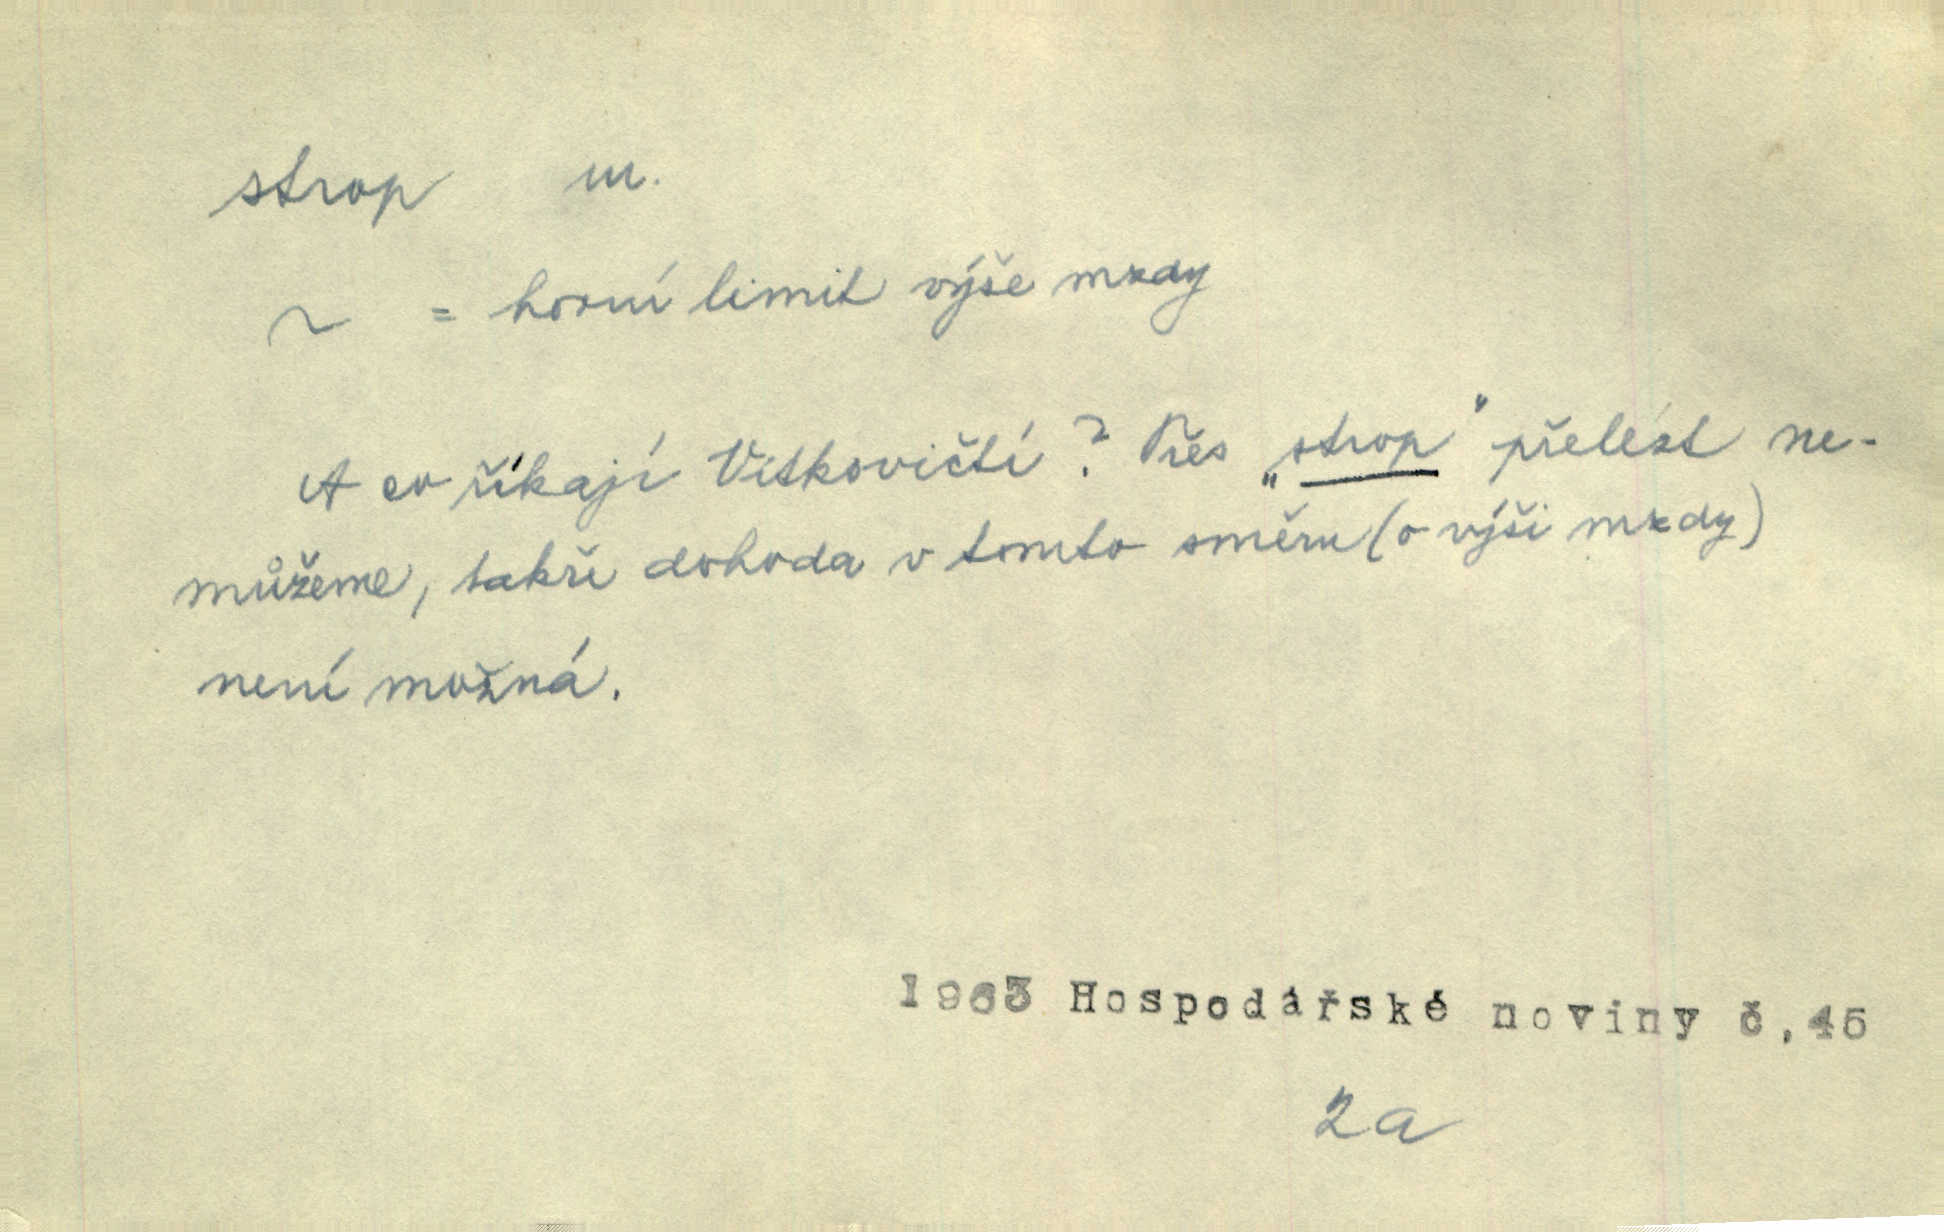 strop m.
~ = horní limit výše mzdy
A co říkají Vítkovičtí? Přes „strop" přelézt ne-
můžeme, takže dohoda v tomto směru (o výši mzdy)
není možná.
1963 Hospodářské noviny č. 45
2a